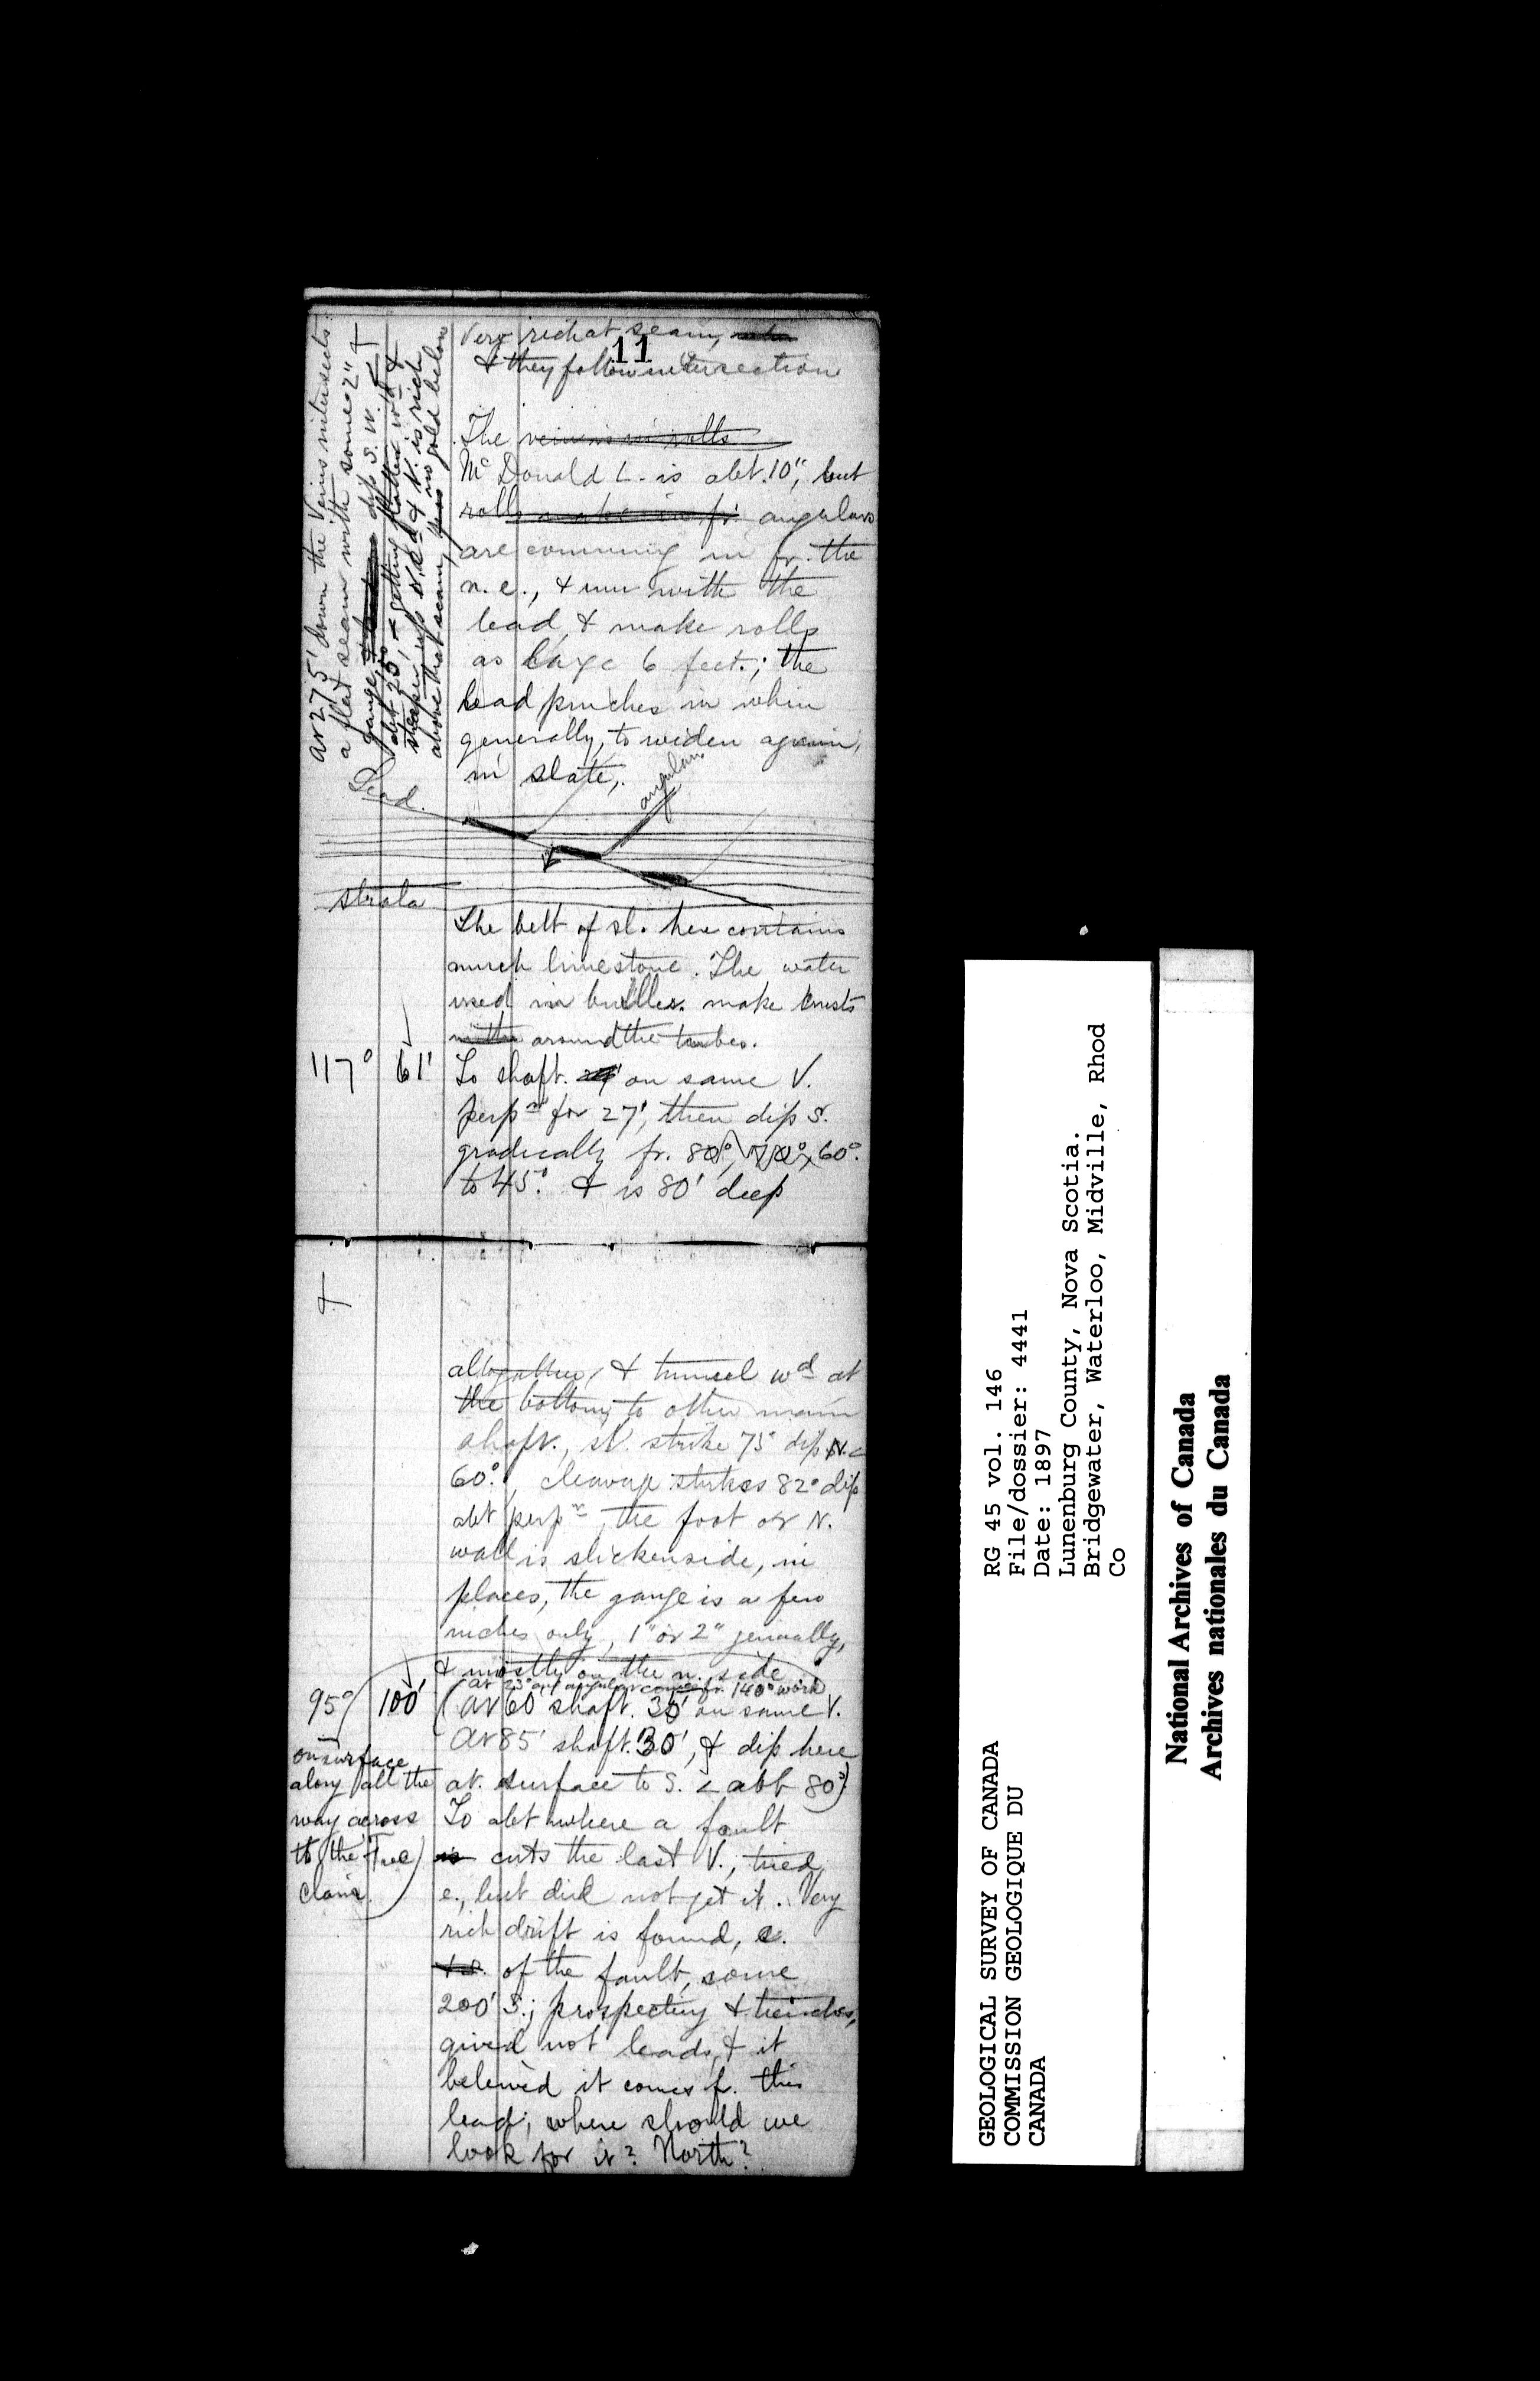 11
Very rich at seam,
& they follow intersection
The vein is in rolls
McDonald L. is abt. 10", but
rolls make in fr. angulars
are comming in fr. the
n.e., & run with the
lead, & make rolls
as large 6 feet.; the
lead pinches in whin
generally, to widen again,
in slate,.
At 275' down the Vein intersects
a flat seam with some 2" of
gauge, dip S.W.
abt 25°, getting flatter wd &
steeper up & V. is rich
above that seam, no gold below
Lead.
angular
strata
The belt of sl. here contains
much limestone. The water
used in builler. make crusts
with around the tanbes.
117° 61' To shaft. on same V.
perpr for 27', then dip S.
gradically fr. 80°, 70°, 60°.
to 45°. & is 80' deep
altogether, & tunnel wd at
the bottom, to other main
shaft., sl. strike 75° dip N. <
60°., cleavage strikes 82° dip
abt perpr, the foot or N.
wall is slickenside, in
places, the gauge is a few
inches only, 1" or 2" generally,
& mostly on the n. side
at 23° an angular comes fr. 140° work
95° 100' (At 60' shaft. 30' on same V.
At 85' shaft. 30', & dip here
at. surface to S. < abt 80°)
on surface
along all the
way across
to the True
Claim.
To abt where a fault
is cuts the last V., tried
e., but did not get it. Very
rich drift is found, e.
of the fault, some
200' S.; prospecting & trenches,
gived not leads, & it
beleived it comes f. this
lead; where should we
look for it? North?
GEOLOGICAL SURVEY OF CANADA
COMMISSION GEOLOGIQUE DU
CANADA
RG 45 vol. 146
File/dossier: 4441
Date: 1897
Lunenburg County, Nova Scotia.
Bridgewater, Waterloo, Midville, Rhod
Co
National Archives of Canada
Archives nationales du Canada